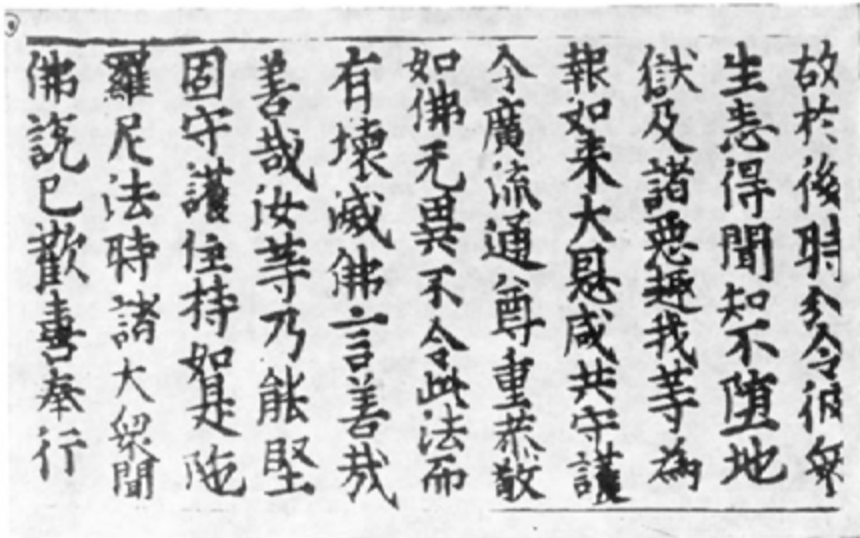 故於後時分令彼衆
生悉得聞知不墮地
獄及諸惡趣我等為
報如来大恩咸共守護
令廣流通尊重恭敬
如佛无異不令此法而
有壞滅佛言善哉
善哉汝等乃能堅
固守護住持如是陁
羅尼法時諸大衆聞
佛説已歡喜奉行